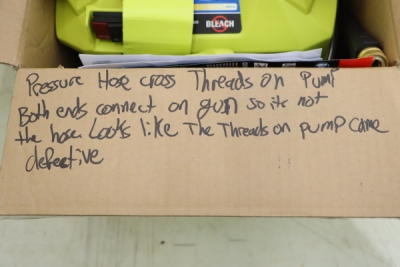 BLEACH
Pressure Hose cross Threads on Pump
Both ends connect on gun so its not
the hose. Looks like The Threads on pump came
defective